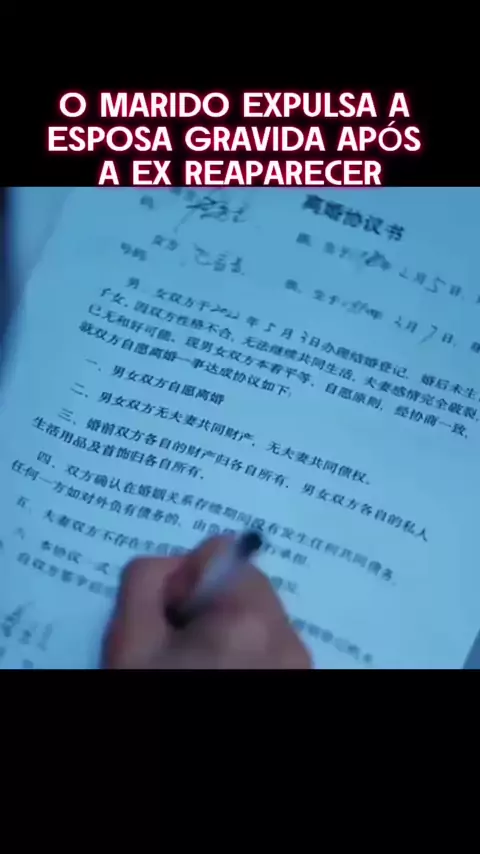 O MARIDO EXPULSA A
ESPOSA GRAVIDA APÓS
A EX REAPARECER
离婚协议书
女方:
男、女双方于2022年5月3日办理结婚登记,婚后未生
子女。因双方性格不合,无法继续共同生活,夫妻感情完全破裂,
已无和好可能。现男女双方本着平等、自愿原则,经协商一致,
就双方自愿离婚一事达成协议如下:
一、男女双方自愿离婚
二、男女双方无夫妻共同财产,无夫妻共同债权。
三、婚前双方各自的财产归各自所有,男女双方各自的私人
生活用品及首饰归各自所有。
四、双方确认在婚姻关系存续期间没有发生任何共同债务,
任何一方如对外负有债务的,由负
承担。
五、夫妻双方不存在生
本协议一式
自双方签字